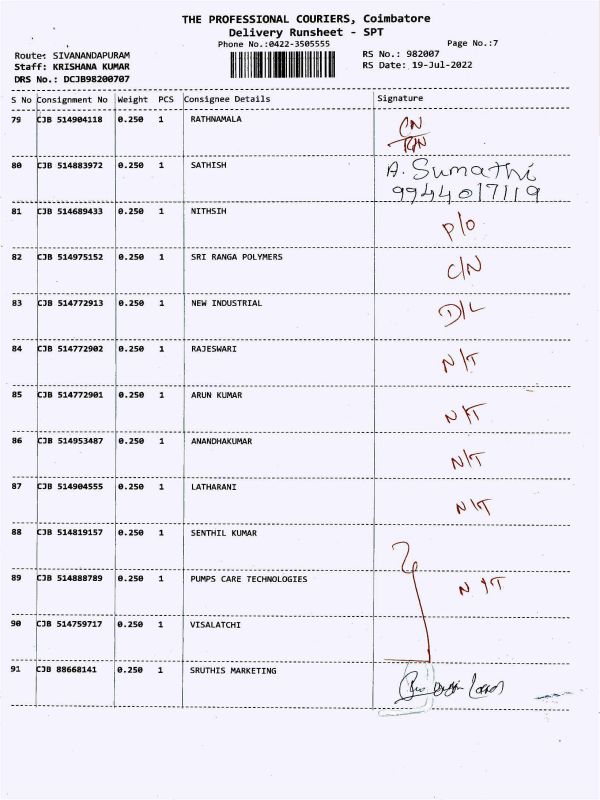 THE PROFESSIONAL COURIERS, Coimbatore
Delivery Runsheet - SPT
Phone No.:0422-3505555
Page No.:7
Route: SIVANANDAPURAM
RS No.: 982007
Staff: KRISHANA KUMAR
RS Date: 19-Jul-2022
DRS No.: DCJB98200707
S No Consignment No Weight PCS Consignee Details Signature
79 CJB 514904118 0.250 1 RATHNAMALA CN
80 CJB 514883972 0.250 1 SATHISH A. Sumathi
9944017119
81 CJB 514689433 0.250 1 NITHSIH P/O
82 CJB 514975152 0.250 1 SRI RANGA POLYMERS C/N
83 CJB 514772913 0.250 1 NEW INDUSTRIAL D/L
84 CJB 514772902 0.250 1 RAJESWARI N/T
85 CJB 514772901 0.250 1 ARUN KUMAR N/T
86 CJB 514953487 0.250 1 ANANDHAKUMAR N/T
87 CJB 514904555 0.250 1 LATHARANI N/T
88 CJB 514819157 0.250 1 SENTHIL KUMAR
89 CJB 514888789 0.250 1 PUMPS CARE TECHNOLOGIES N/T
90 CJB 514759717 0.250 1 VISALATCHI
91 CJB 88668141 0.250 1 SRUTHIS MARKETING